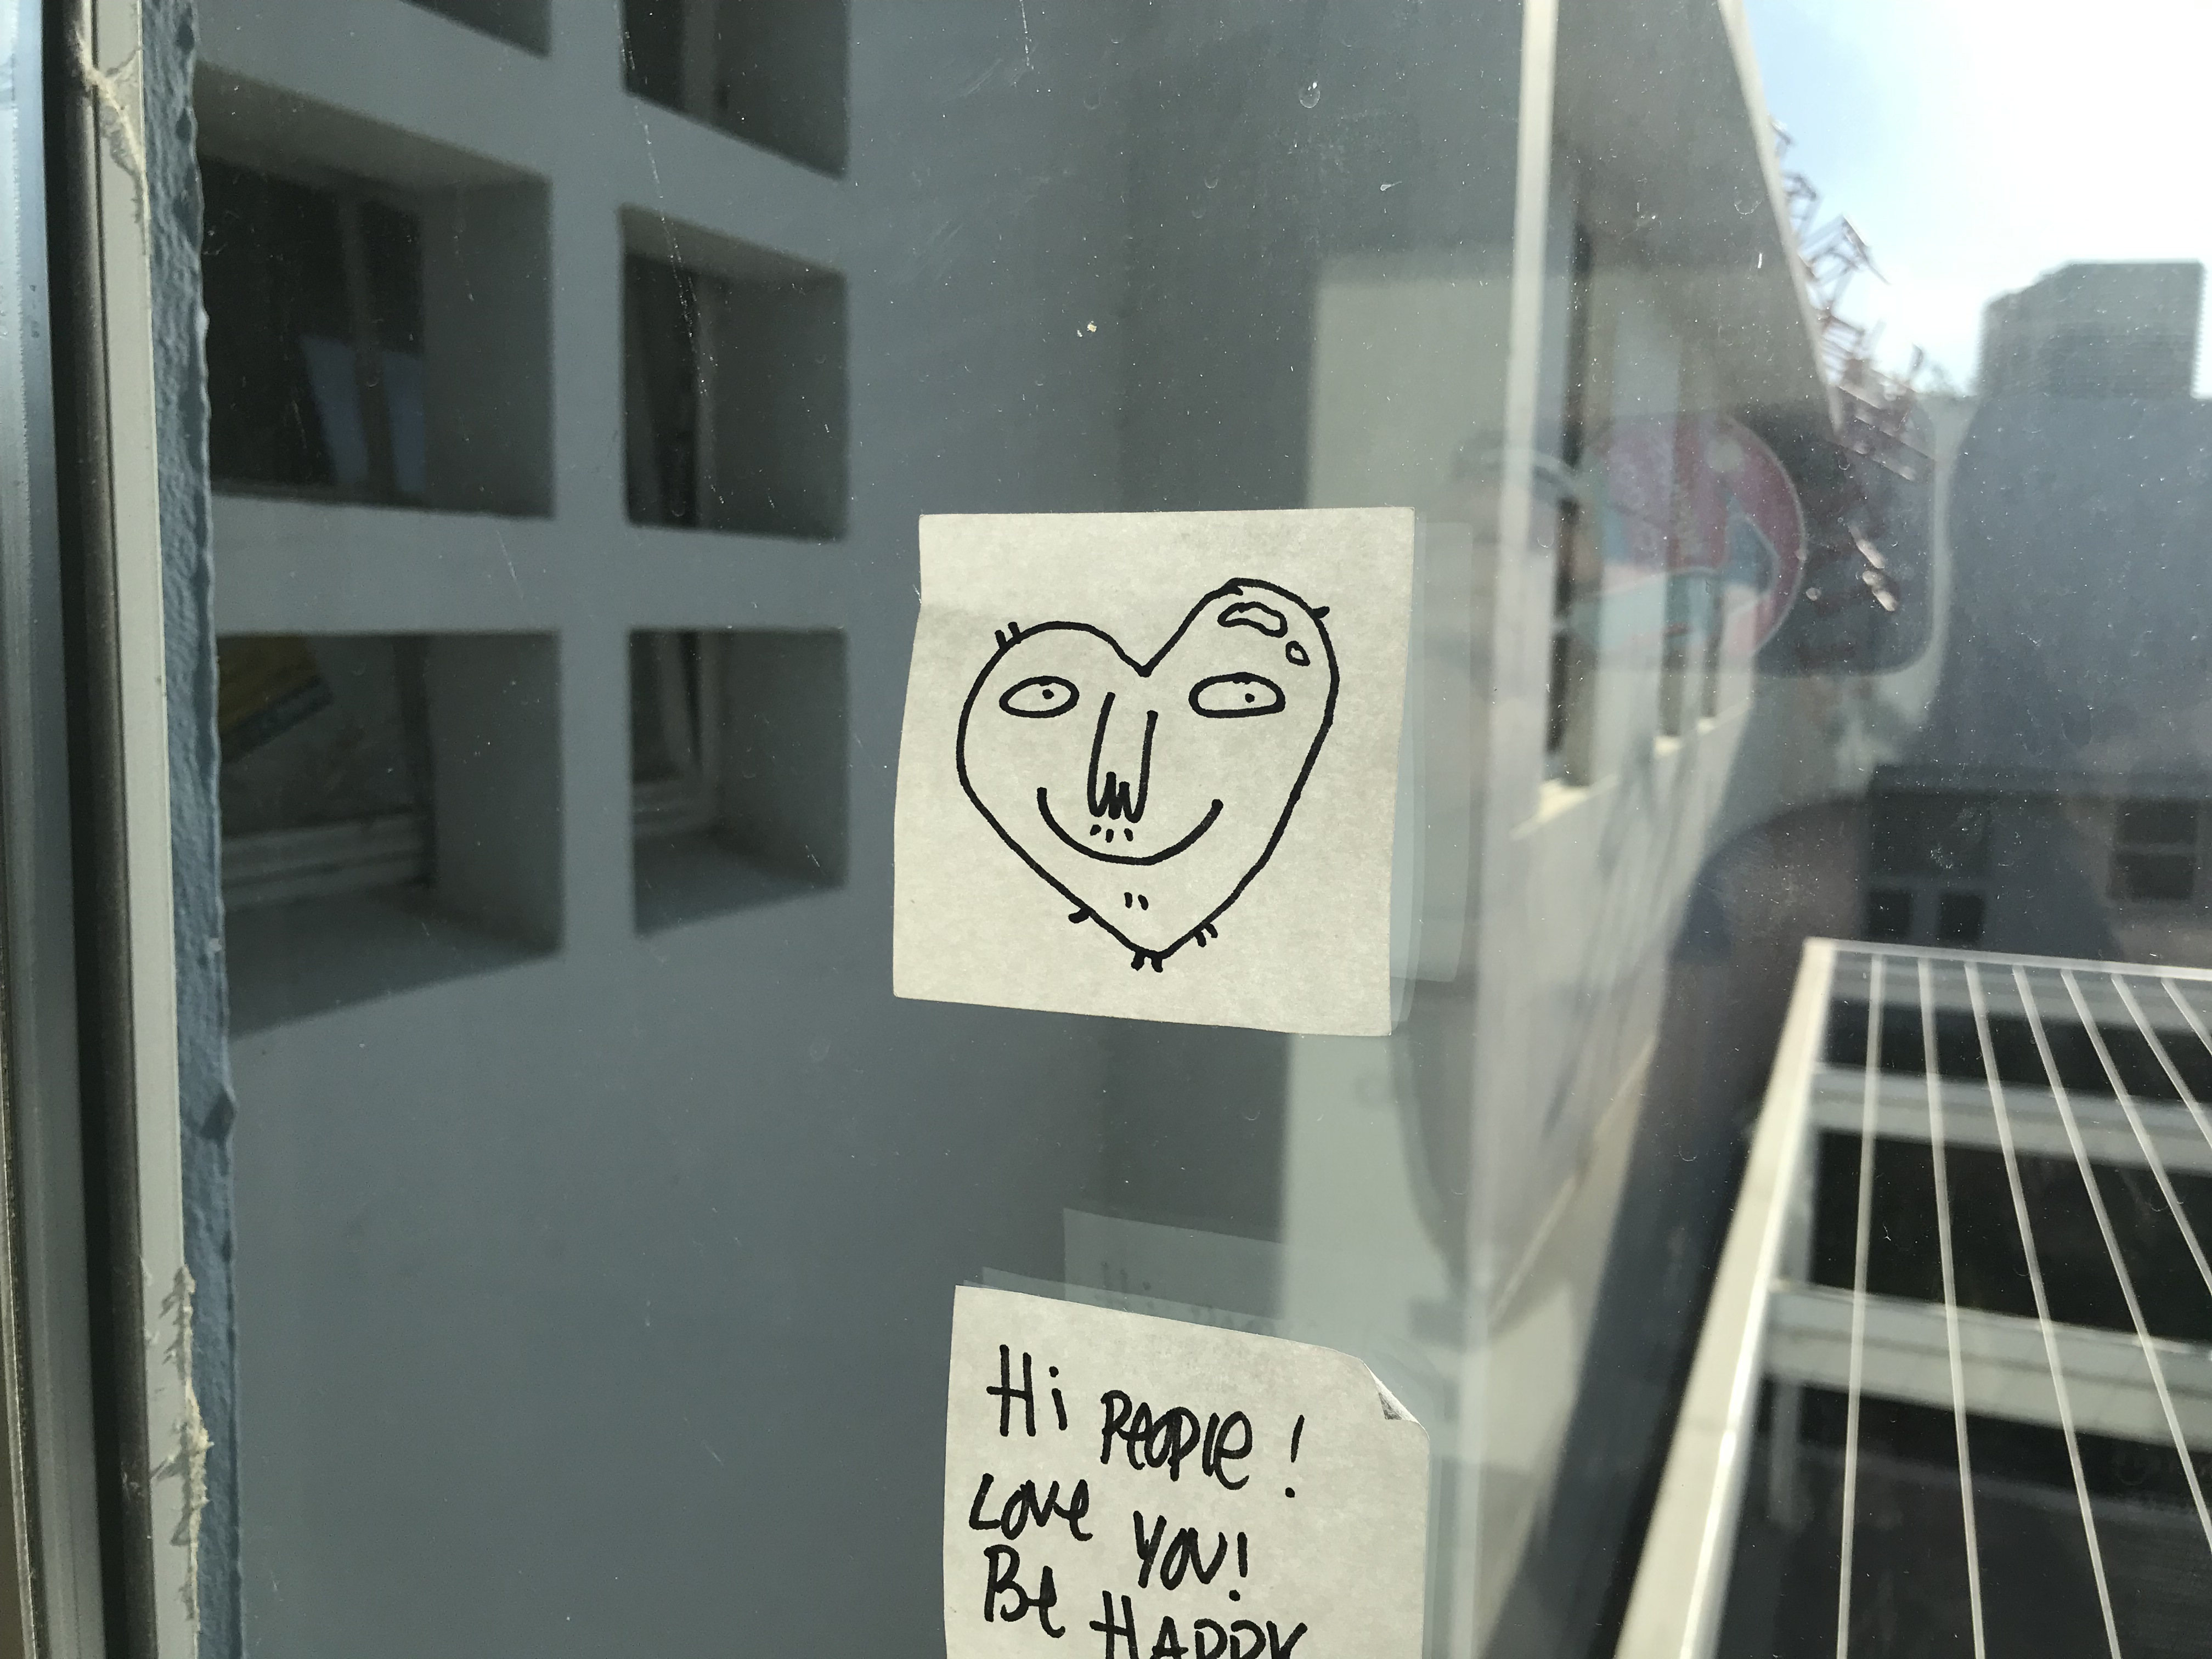 Hi PEOPLE!
LOVE YOU!
Be HAPPY